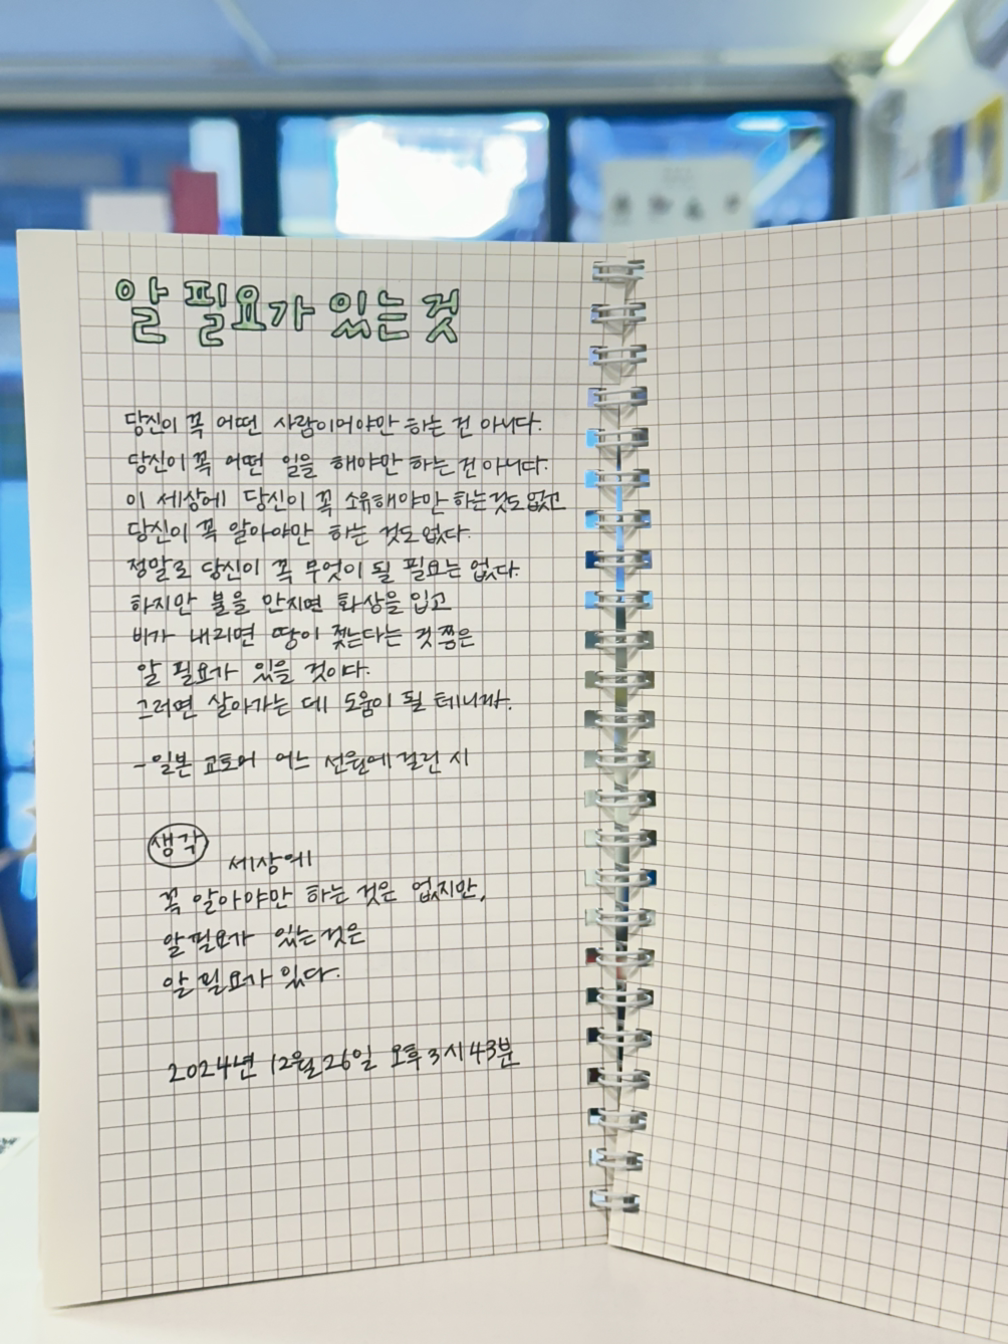 알 필요가 있는 것
당신이 꼭 어떤 사람이어야만 하는 건 아니다.
당신이 꼭 어떤 일을 해야만 하는 건 아니다.
이 세상에 당신이 꼭 소유해야만 하는것도 없고
당신이 꼭 알아야만 하는 것도 없다.
정말로 당신이 꼭 무엇이 될 필요는 없다.
하지만 불을 만지면 화상을 입고
비가 내리면 땅이 젖는다는 것 쯤은
알 필요가 있을 것이다.
그러면 살아가는 데 도움이 될 테니까.
-일본 교토에 어느 선원에 걸린 시
생각
세상에
꼭 알아야만 하는 것은 없지만,
알 필요가 있는 것은
알 필요가 있다.
2024년 12월 26일 오후 3시 43분